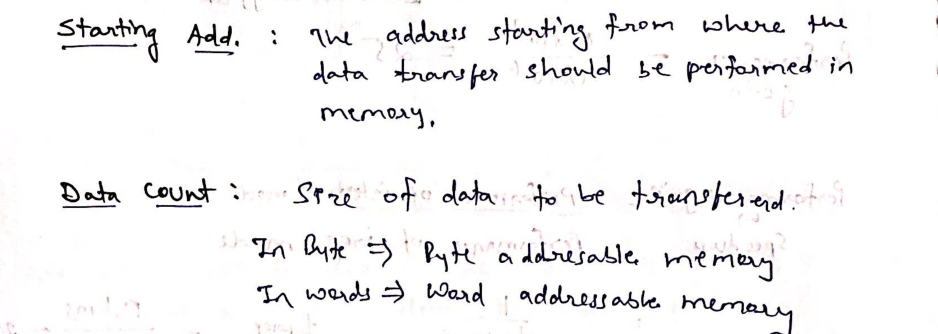 Starting Add. : The address starting from where the
data transfer should be performed in
memory.
Data Count : Size of data to be transfererd.
In Byte ⇒ Byte addresable memory
In words ⇒ Word addressable memory